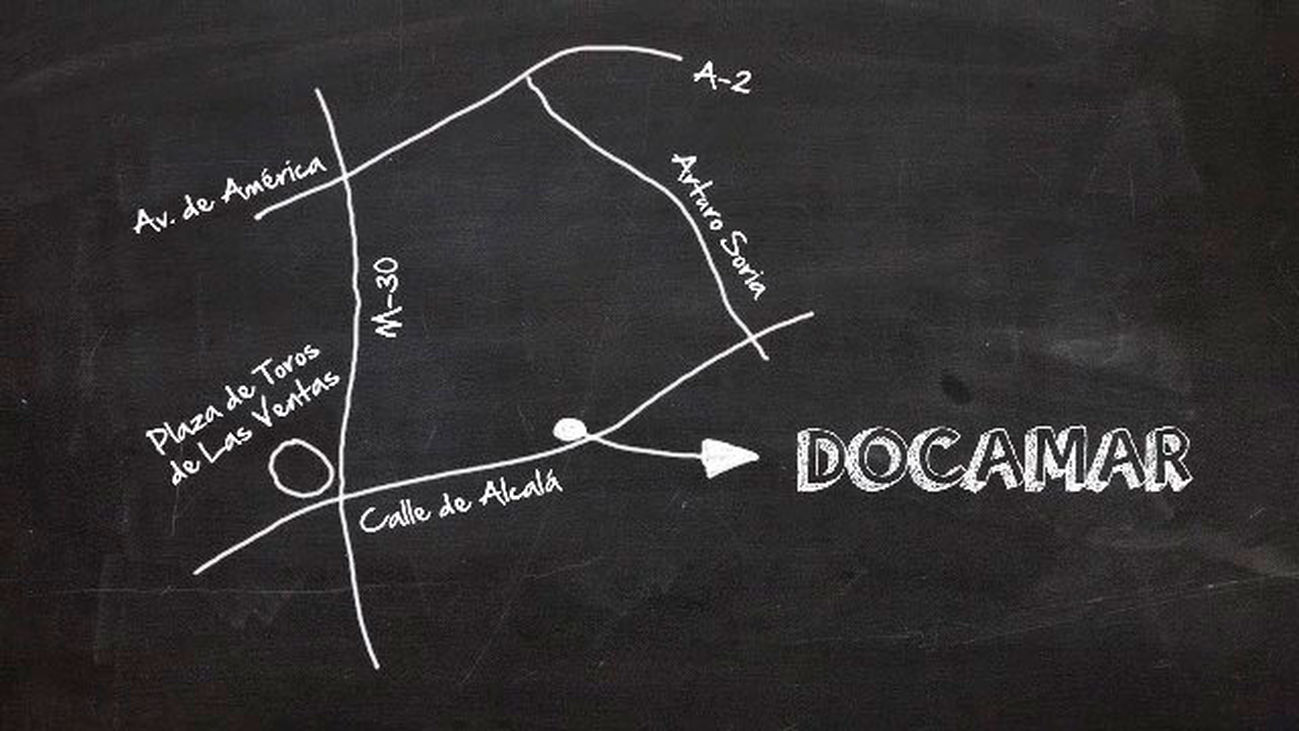 A-2
Av. de América
Arturo Soria
M-30
Plaza de Toros
de Las Ventas
Calle de Alcalá
DOCAMAR